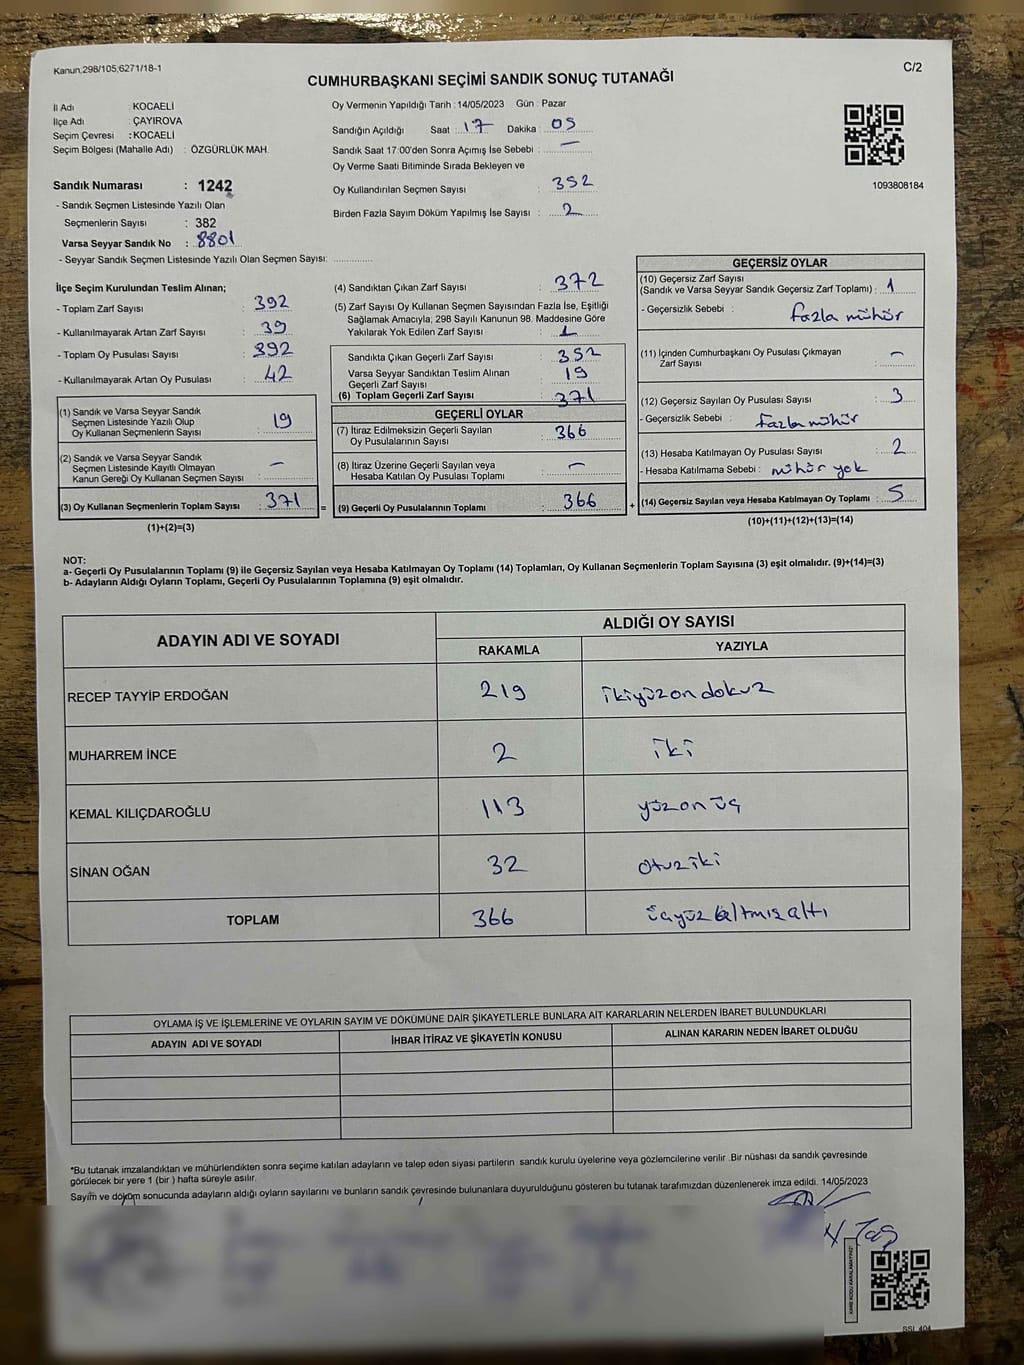 Kanun:298/105,6271/18-1
C/2
CUMHURBAŞKANI SEÇİMİ SANDIK SONUÇ TUTANAĞI
İl Adı : KOCAELİ
İlçe Adı : ÇAYIROVA
Seçim Çevresi : KOCAELİ
Seçim Bölgesi (Mahalle Adı) : ÖZGÜRLÜK MAH.
Sandık Numarası : 1242
- Sandık Seçmen Listesinde Yazılı Olan
Seçmenlerin Sayısı : 382
Varsa Seyyar Sandık No : 8801
- Seyyar Sandık Seçmen Listesinde Yazılı Olan Seçmen Sayısı: ..............
Oy Vermenin Yapıldığı Tarih :14/05/2023 Gün : Pazar
Sandığın Açıldığı Saat : 17 Dakika : 05
Sandık Saat 17:00'den Sonra Açımış İse Sebebi : —
Oy Verme Saati Bitiminde Sırada Bekleyen ve
Oy Kullandırılan Seçmen Sayısı : 352
Birden Fazla Sayım Döküm Yapılmış İse Sayısı : 2
1093808184
İlçe Seçim Kurulundan Teslim Alınan;
- Toplam Zarf Sayısı : 392
- Kullanılmayarak Artan Zarf Sayısı : 39
- Toplam Oy Pusulası Sayısı : 392
- Kullanılmayarak Artan Oy Pusulası : 42
(1) Sandık ve Varsa Seyyar Sandık
Seçmen Listesinde Yazılı Olup
Oy Kullanan Seçmenlerin Sayısı : 19
(2) Sandık ve Varsa Seyyar Sandık
Seçmen Listesinde Kayıtlı Olmayan
Kanun Gereği Oy Kullanan Seçmen Sayısı : —
(3) Oy Kullanan Seçmenlerin Toplam Sayısı : 371 =
(1)+(2)=(3)
(4) Sandıktan Çıkan Zarf Sayısı : 372
(5) Zarf Sayısı Oy Kullanan Seçmen Sayısından Fazla İse, Eşitliği
Sağlamak Amacıyla; 298 Sayılı Kanunun 98. Maddesine Göre
Yakılarak Yok Edilen Zarf Sayısı : 1
Sandıkta Çıkan Geçerli Zarf Sayısı : 352
Varsa Seyyar Sandıktan Teslim Alınan
Geçerli Zarf Sayısı : 19
(6) Toplam Geçerli Zarf Sayısı : 371
GEÇERLİ OYLAR
(7) İtiraz Edilmeksizin Geçerli Sayılan
Oy Pusulalarının Sayısı : 366
(8) İtiraz Üzerine Geçerli Sayılan veya
Hesaba Katılan Oy Pusulası Toplamı : —
(9) Geçerli Oy Pusulalarının Toplamı : 366 +
GEÇERSİZ OYLAR
(10) Geçersiz Zarf Sayısı
(Sandık ve Varsa Seyyar Sandık Geçersiz Zarf Toplamı) : 1
- Geçersizlik Sebebi : fazla mühür
(11) İçinden Cumhurbaşkanı Oy Pusulası Çıkmayan
Zarf Sayısı : —
(12) Geçersiz Sayılan Oy Pusulası Sayısı : 3
- Geçersizlik Sebebi : fazla mühür
(13) Hesaba Katılmayan Oy Pusulası Sayısı : 2
- Hesaba Katılmama Sebebi : mühür yok
(14) Geçersiz Sayılan veya Hesaba Katılmayan Oy Toplamı : 5
(10)+(11)+(12)+(13)=(14)
NOT:
a- Geçerli Oy Pusulalarının Toplamı (9) ile Geçersiz Sayılan veya Hesaba Katılmayan Oy Toplamı (14) Toplamları, Oy Kullanan Seçmenlerin Toplam Sayısına (3) eşit olmalıdır. (9)+(14)=(3)
b- Adayların Aldığı Oyların Toplamı, Geçerli Oy Pusulalarının Toplamına (9) eşit olmalıdır.
ADAYIN ADI VE SOYADI
ALDIĞI OY SAYISI
RAKAMLA YAZIYLA
RECEP TAYYİP ERDOĞAN 219 ikiyüzondokuz
MUHARREM İNCE 2 iki
KEMAL KILIÇDAROĞLU 113 yüzonüç
SİNAN OĞAN 32 otuziki
TOPLAM 366 üçyüz altmışaltı
OYLAMA İŞ VE İŞLEMLERİNE VE OYLARIN SAYIM VE DÖKÜMÜNE DAİR ŞİKAYETLERLE BUNLARA AİT KARARLARIN NELERDEN İBARET BULUNDUKLARI
ADAYIN ADI VE SOYADI İHBAR İTİRAZ VE ŞİKAYETİN KONUSU ALINAN KARARIN NEDEN İBARET OLDUĞU
*Bu tutanak imzalandıktan ve mühürlendikten sonra seçime katılan adayların ve talep eden siyasi partilerin sandık kurulu üyelerine veya gözlemcilerine verilir .Bir nüshası da sandık çevresinde
görülecek bir yere 1 (bir ) hafta süreyle asılır.
Sayım ve döküm sonucunda adayların aldığı oyların sayılarını ve bunların sandık çevresinde bulunanlara duyurulduğunu gösteren bu tutanak tarafımızdan düzenlenerek imza edildi. 14/05/2023
KARE KODU KARALAMAYINIZ!
SSI 404